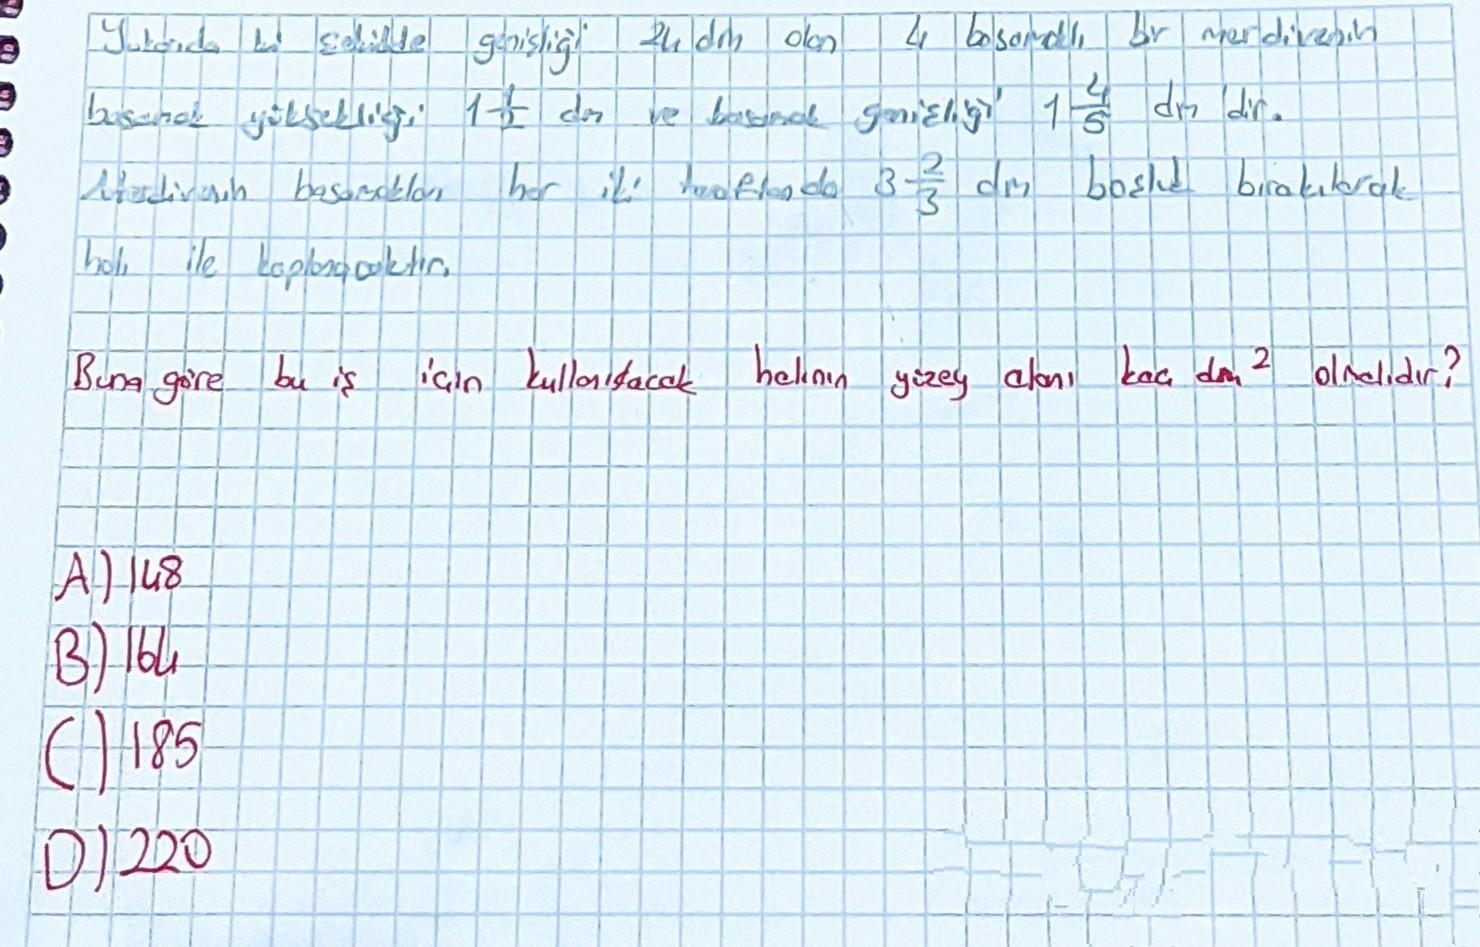 Yukarıda ki şekilde genişliği 24 dm olan 4 basamaklı bir merdivenin
basamak yüksekliği 1 1/2 dm ve basamak genişliği 1 4/5 dm'dir.
Merdivenin basamakları her iki taraftanda 3 2/3 dm boşluk bırakılarak
halı ile kaplanacaktır.
Buna göre bu iş için kullanılacak halının yüzey alanı kaç dm² olmalıdır?
A) 148
B) 164
C) 185
D) 220